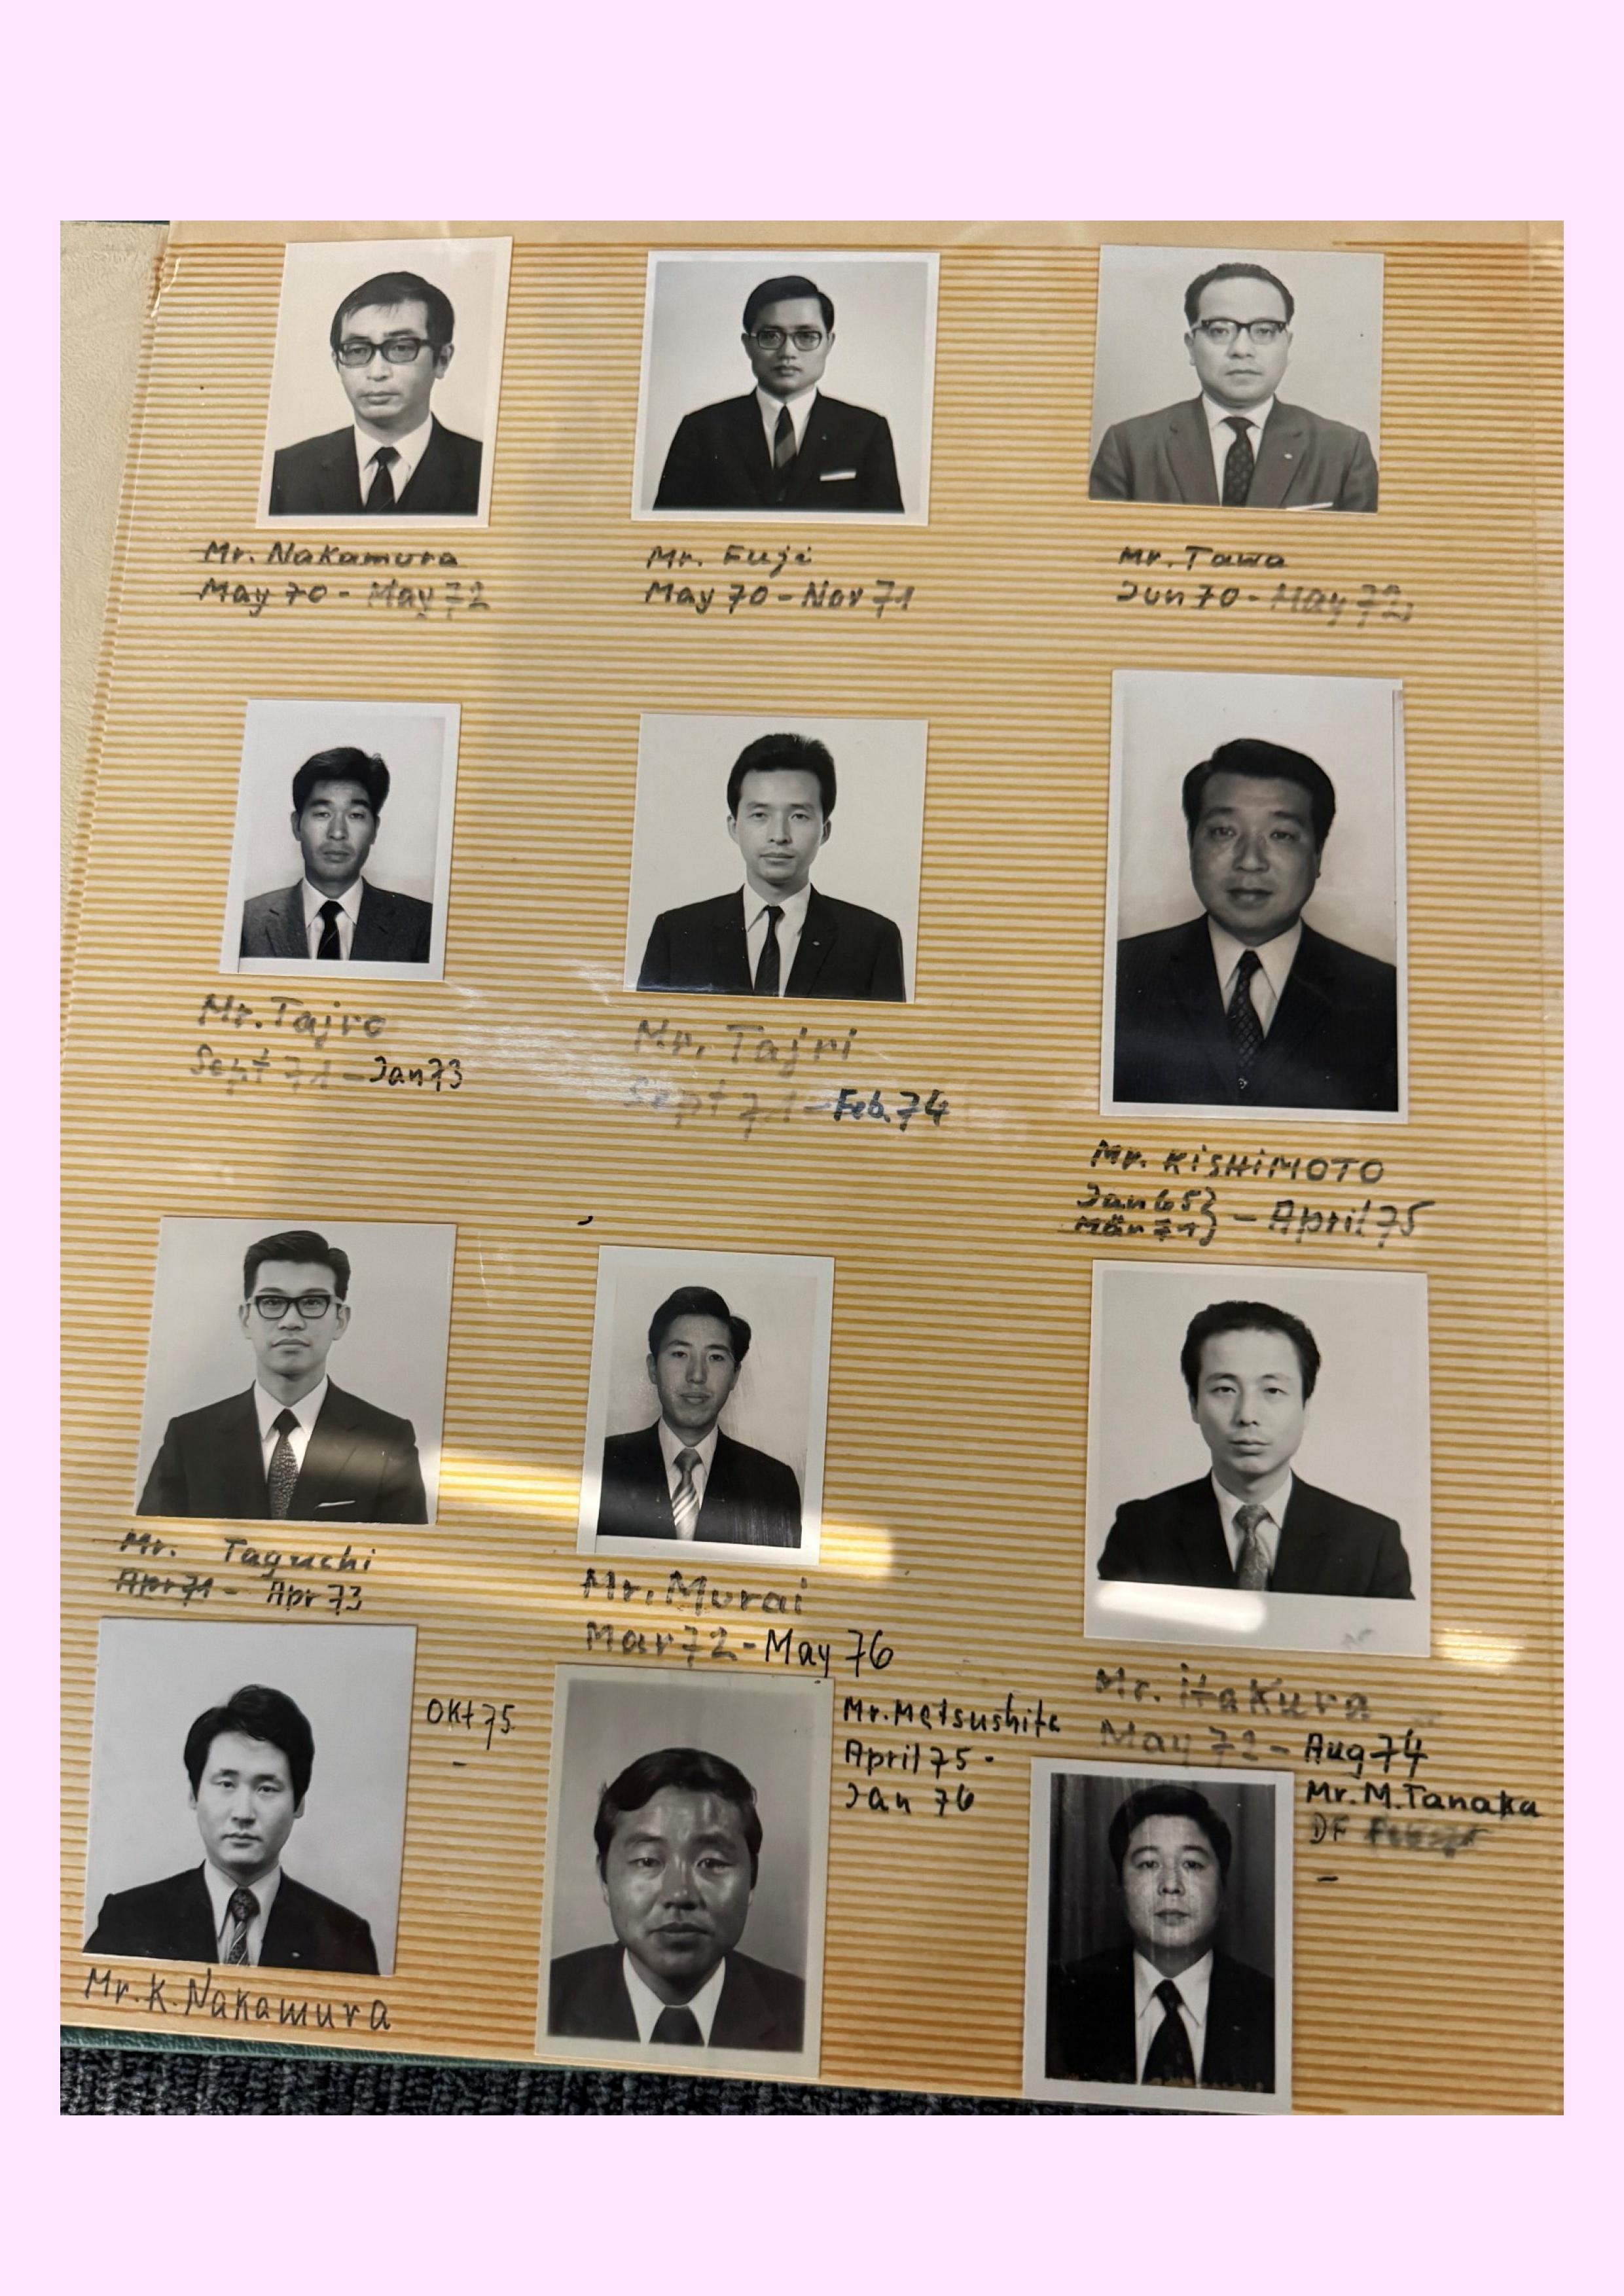 Mr. Nakamura
May 70 - May 72
Mr. Fuji
May 70 - Nov 71
Mr. Tawa
Jun 70 - May 72
Mr. Tajro
Sept 71 - Jan 73
Mr. Tajri
Sept 71 - Feb. 74
Mr. KiSHiMOTO
Jan 65 } - April 75
Mär 71 }
Mr. Taguchi
Apr 71 - Apr 73
Mr. Murai
Mar 72 - May 76
Mr. itakura
May 72 - Aug 74
Okt 75
-
Mr. K. Nakamura
Mr. Matsushita
April 75 -
Jan 76
Mr. M. Tanaka
DF
-